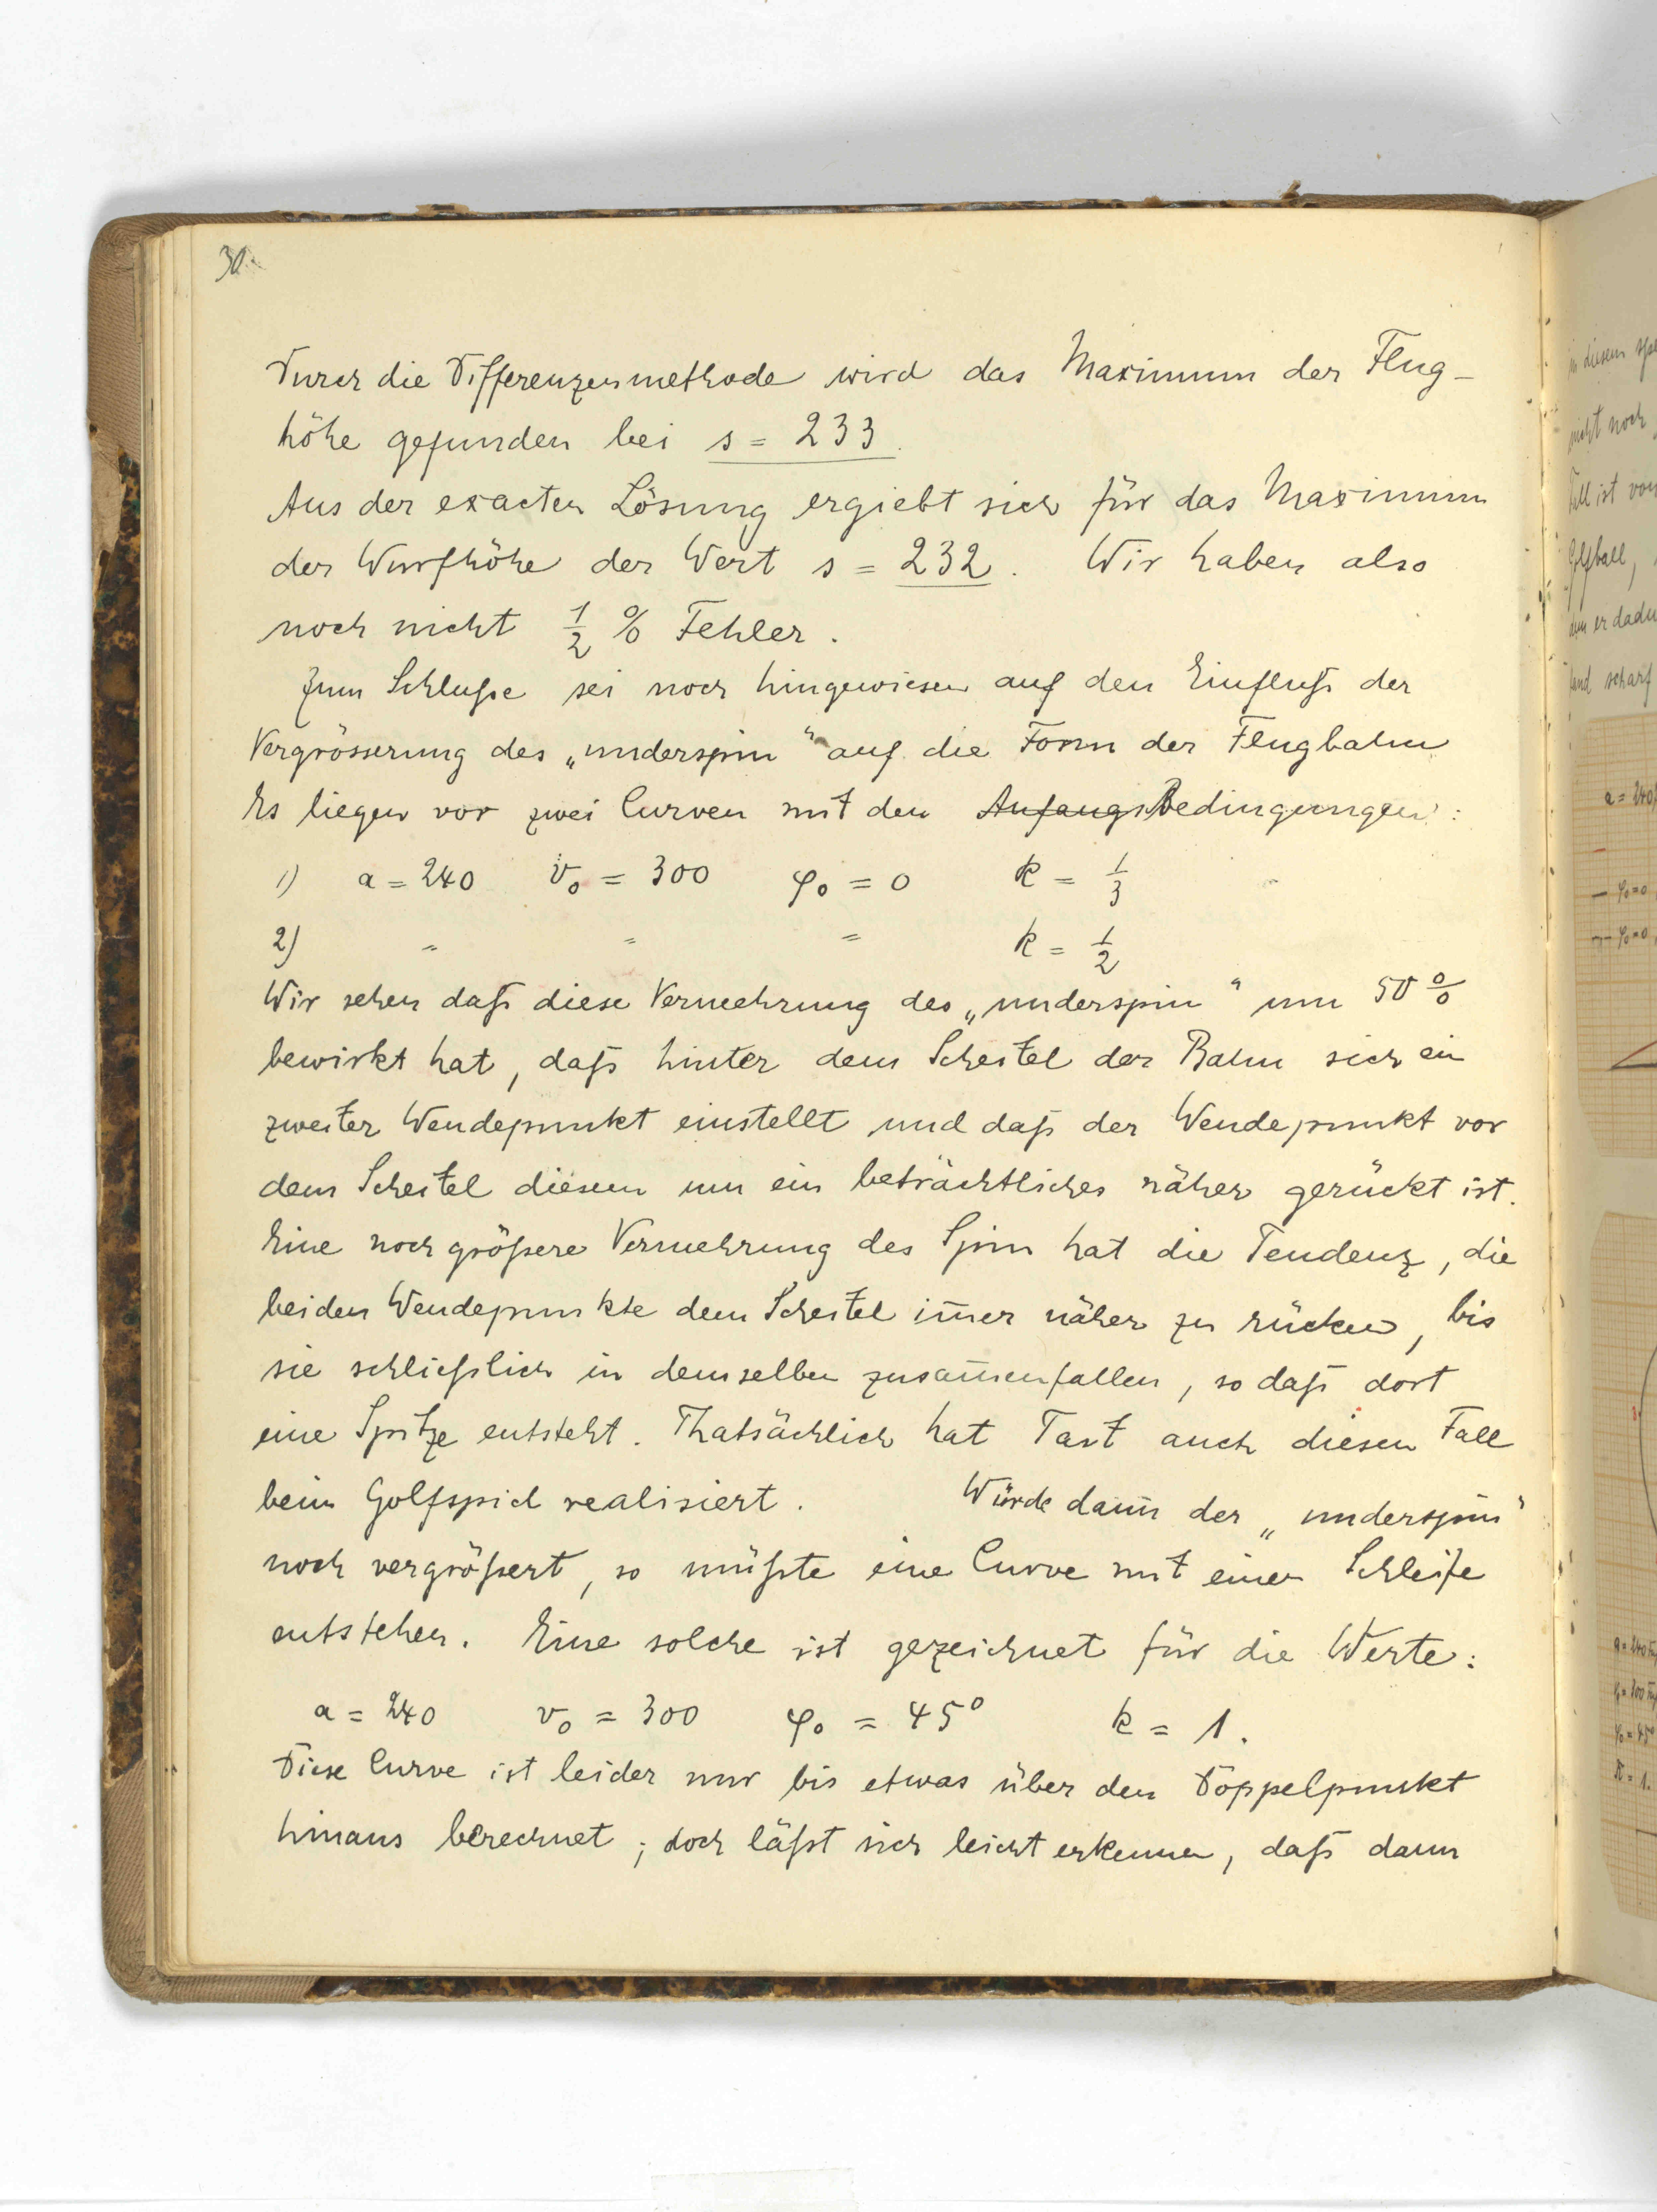 30.
Durch die Differenzenmethode wird das Maximum der Flug-
höhe gefunden bei s = 233.
Aus der exacten Lösung ergiebt sich für das Maximum
der Wurfhöhe der Wert s = 232. Wir haben also
noch nicht 1/2 % Fehler.
Zum Schluße sei noch hingewiesen auf den Einfluß der
Vergrösserung des „underspin“ auf die Form der Flugbahn
Es liegen vor zwei Curven mit den Anfangs Bedingungen:
1) a = 240 v₀ = 300 φ₀ = 0 k = 1/3
2) " " " k = 1/2
Wir sehen daß diese Vermehrung des „underspin“ um 50 %
bewirkt hat, daß hinter dem Scheitel der Bahn sich ein
zweiter Wendepunkt einstellt und daß der Wendepunkt vor
dem Scheitel diesem um ein beträchtliches näher gerückt ist.
Eine noch größere Vermehrung des Spin hat die Tendenz, die
beiden Wendepunkte dem Scheitel im̅er näher zu rücken, bis
sie schließlich in demselben zusam̅enfallen, so daß dort
eine Spitze entsteht. Thatsächlich hat Tait auch diesen Fall
beim Golfspiel realisiert. Würde dann der „underspin“
noch vergrößert, so müßte eine Curve mit einer Schleife
entstehen. Eine solche ist gezeichnet für die Werte:
a = 240 v₀ = 300 φ₀ = 45° k = 1.
Diese Curve ist leider nur bis etwas über den Doppelpunkt
hinaus berechnet; doch läßt sich leicht erkennen, daß dann
in diesem
nicht noch
Fall ist von
Golfball,
scharf
a = 240
φ₀=0
φ₀=0
a = 240
φ₀ = 45°
k = 1.